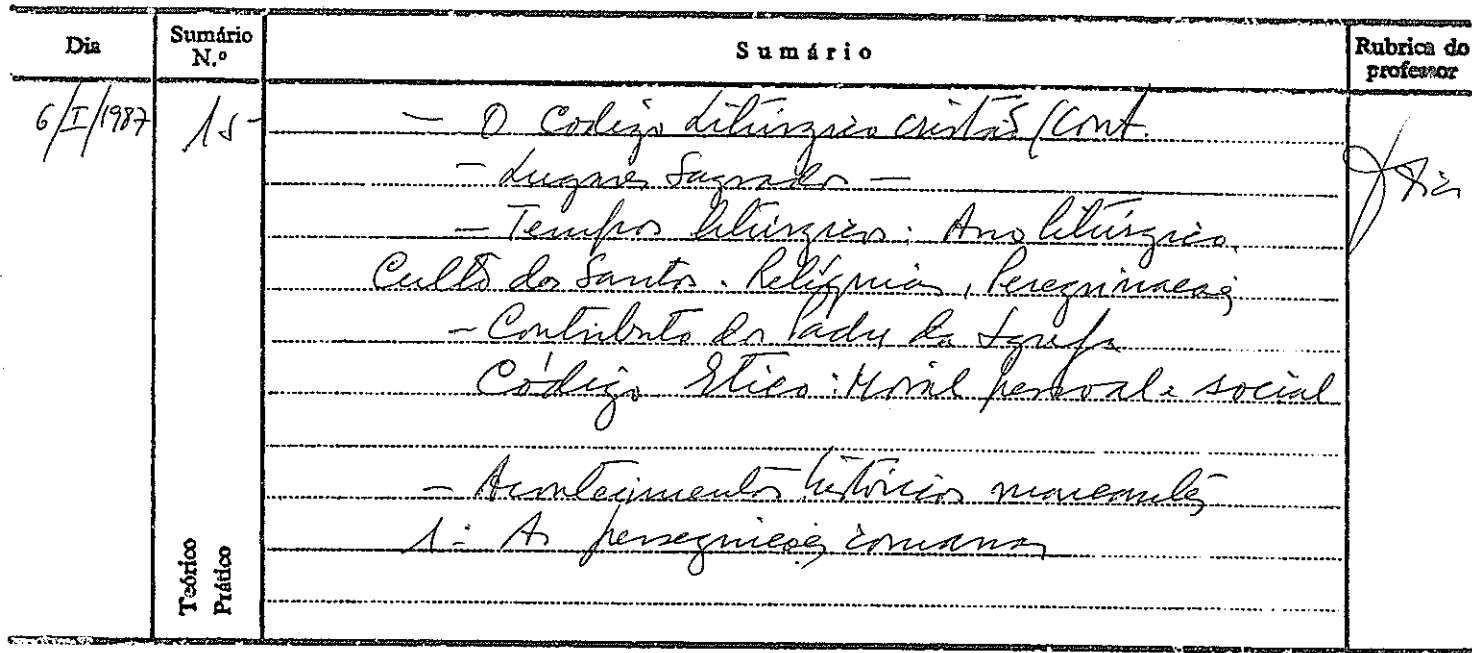 Dia
Sumário N.º
Sumário
Rubrica do professor
6/I/1987
15-
- O Codigo Litúrgico cristão/Cont.
- Lugares Sagrados -
- Tempos litúrgicos: Ano litúrgico.
Culto dos Santos. Relíquias, Peregrinações
- Contributo dos Padres da Igreja
Código Etico: Moral pessoal e social
- Acontecimentos históricos marcantes
1- As perseguições romanas
Teórico
Prático